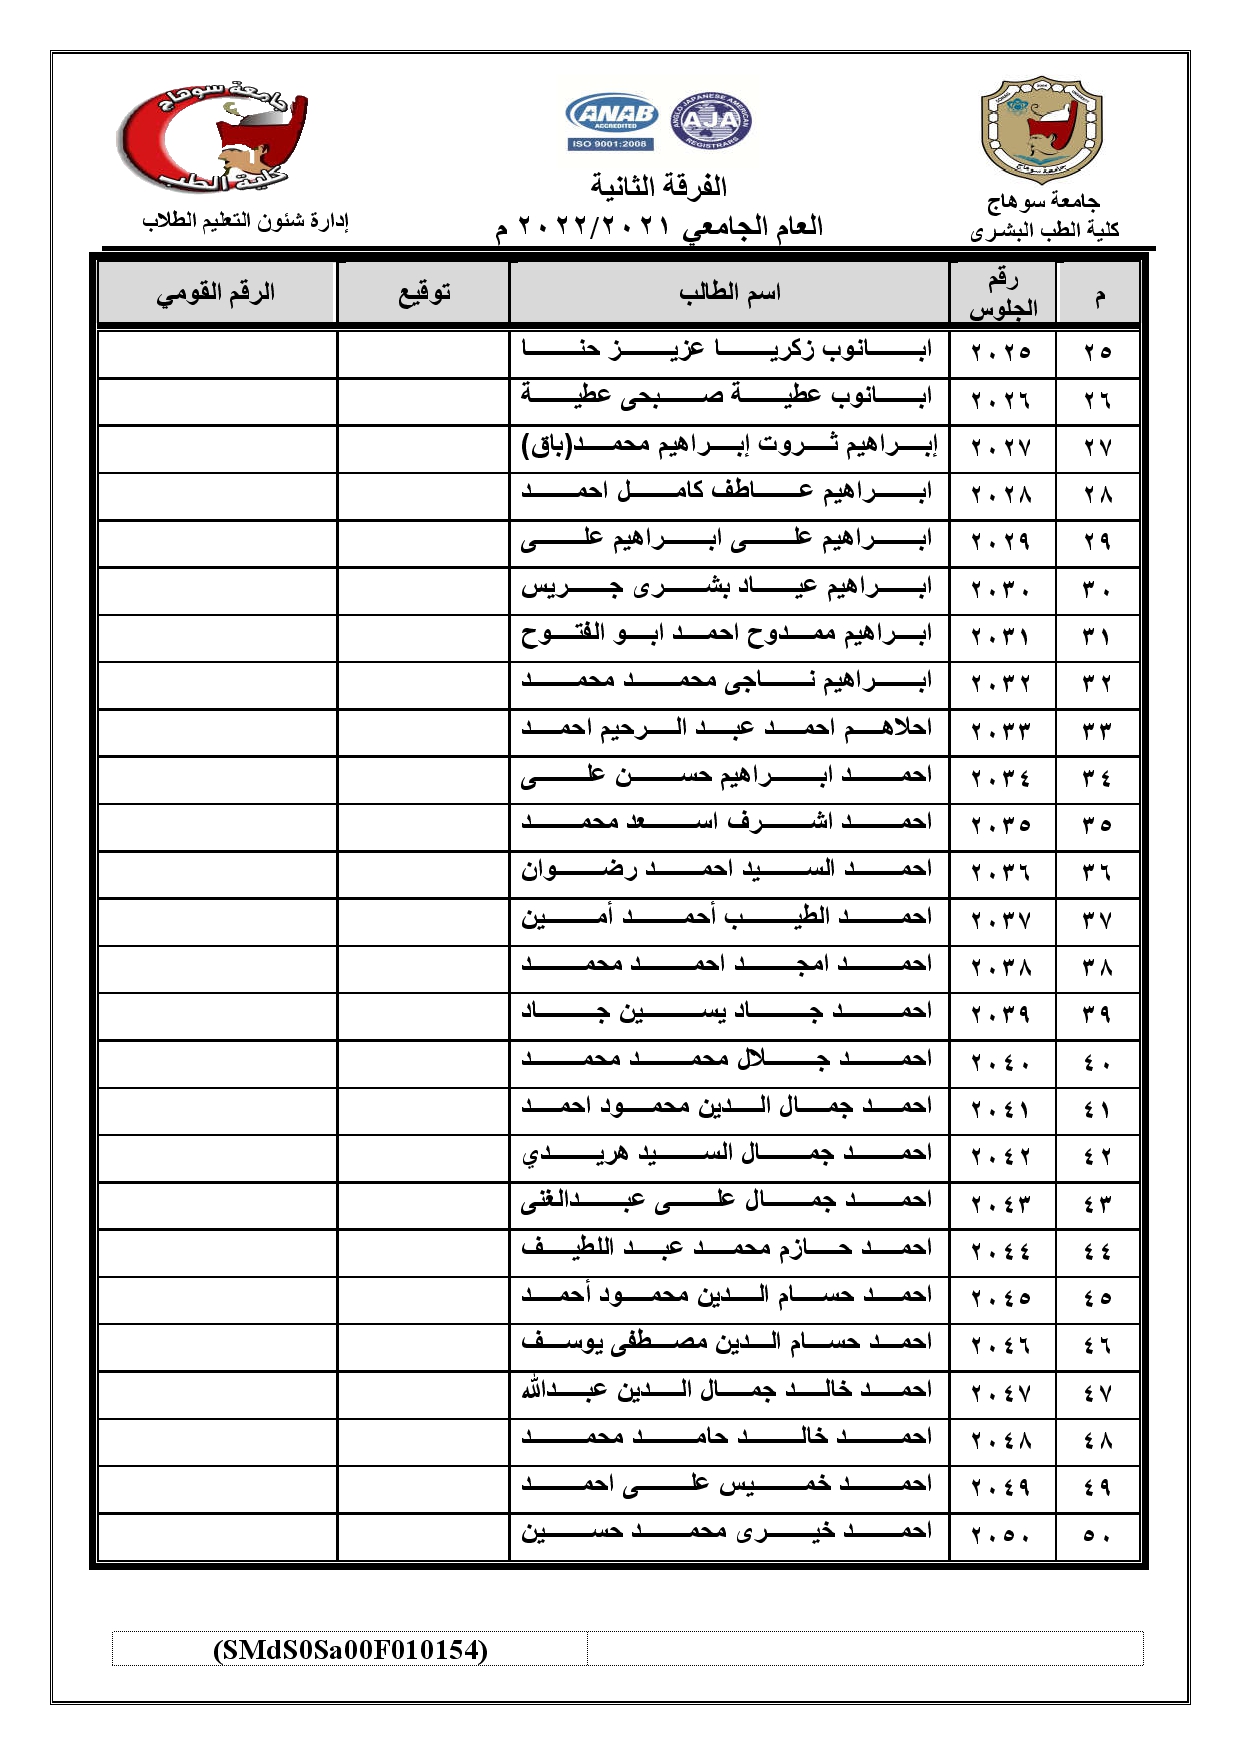 جامعة سوهاج
كلية الطب
ANAB
ACCREDITED
ISO 9001:2008
ANGLO JAPANESE AMERICAN
AJA
REGISTRARS
جامعة سوهاج
الفرقة الثانية
جامعة سوهاج
كلية الطب البشرى
العام الجامعي ٢٠٢٢/٢٠٢١ م
إدارة شئون التعليم الطلاب
م رقم الجلوس اسم الطالب توقيع الرقم القومي
٢٥ ٢٠٢٥ ابانوب زكريا عزيز حنا
٢٦ ٢٠٢٦ ابانوب عطية صبحى عطية
٢٧ ٢٠٢٧ إبراهيم ثروت إبراهيم محمد(باق)
٢٨ ٢٠٢٨ ابراهيم عاطف كامل احمد
٢٩ ٢٠٢٩ ابراهيم على ابراهيم على
٣٠ ٢٠٣٠ ابراهيم عياد بشرى جريس
٣١ ٢٠٣١ ابراهيم ممدوح احمد ابو الفتوح
٣٢ ٢٠٣٢ ابراهيم ناجى محمد محمد
٣٣ ٢٠٣٣ احلاهم احمد عبد الرحيم احمد
٣٤ ٢٠٣٤ احمد ابراهيم حسن على
٣٥ ٢٠٣٥ احمد اشرف اسعد محمد
٣٦ ٢٠٣٦ احمد السيد احمد رضوان
٣٧ ٢٠٣٧ احمد الطيب أحمد أمين
٣٨ ٢٠٣٨ احمد امجد احمد محمد
٣٩ ٢٠٣٩ احمد جاد يسين جاد
٤٠ ٢٠٤٠ احمد جلال محمد محمد
٤١ ٢٠٤١ احمد جمال الدين محمود احمد
٤٢ ٢٠٤٢ احمد جمال السيد هريدي
٤٣ ٢٠٤٣ احمد جمال على عبدالغنى
٤٤ ٢٠٤٤ احمد حازم محمد عبد اللطيف
٤٥ ٢٠٤٥ احمد حسام الدين محمود أحمد
٤٦ ٢٠٤٦ احمد حسام الدين مصطفى يوسف
٤٧ ٢٠٤٧ احمد خالد جمال الدين عبدالله
٤٨ ٢٠٤٨ احمد خالد حامد محمد
٤٩ ٢٠٤٩ احمد خميس على احمد
٥٠ ٢٠٥٠ احمد خيرى محمد حسين
(SMdS0Sa00F010154)